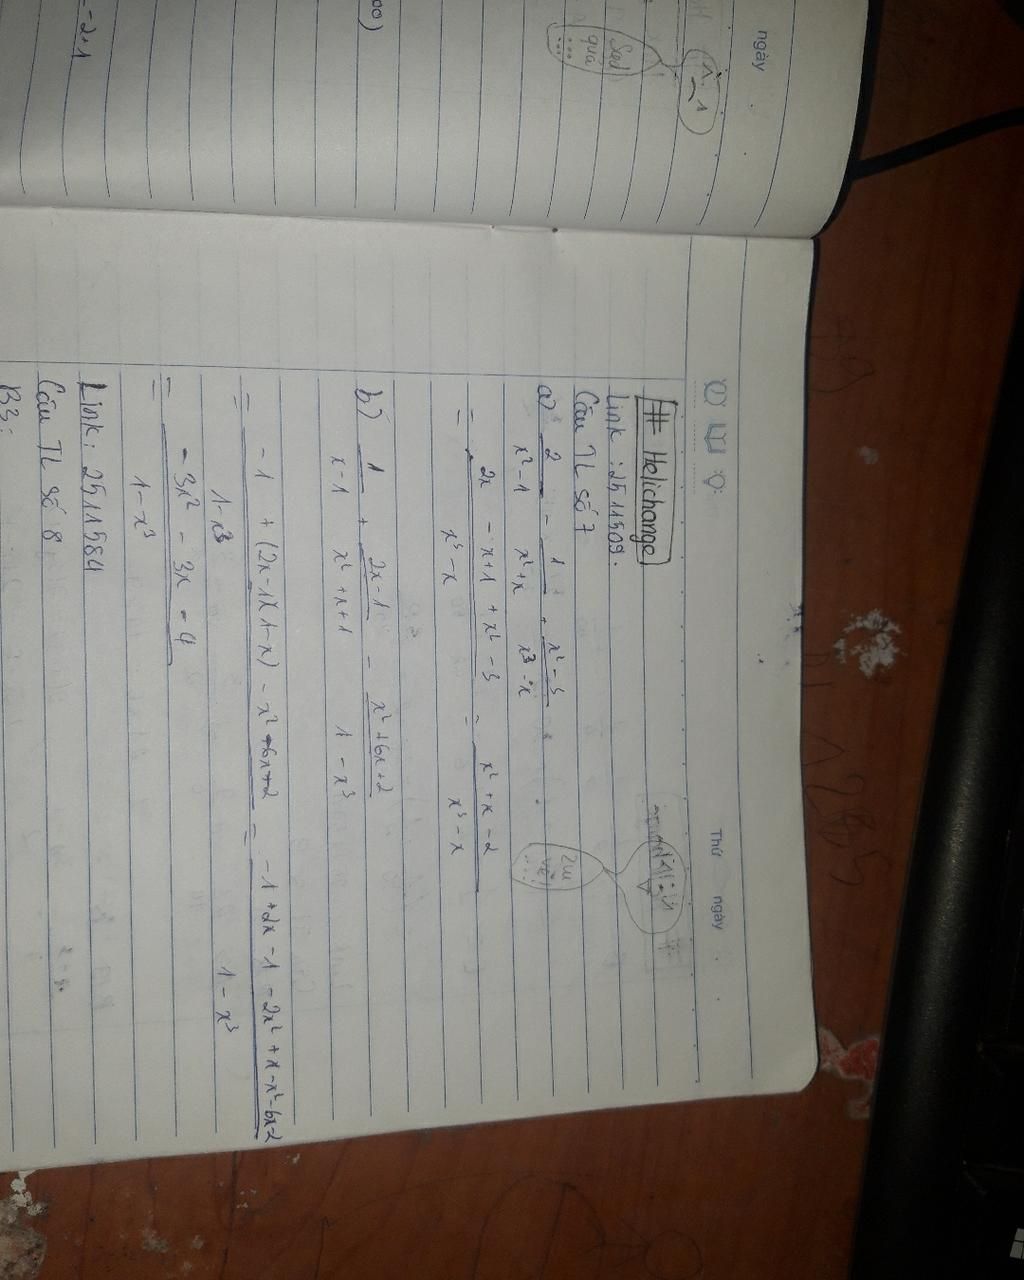 ngày
Sad
quá
...
00)
= -2+1
Thứ ngày
# Helichange
Link : 2511509.
Câu TL số 7
a) 2/(x² - 1) - 1/(x² + x) + (x² - 3)/(x³ - x)
= (2x - x + 1 + x² - 3)/(x³ - x) = (x² + x - 2)/(x³ - x)
b) 1/(x - 1) + (2x - 1)/(x² + x + 1) - (x² + 6x + 2)/(1 - x³)
= (-1 + (2x - 1)(1 - x) - x² + 6x + 2)/(1 - x³) = (-1 + 2x - 1 - 2x² + x - x² - 6x - 2)/(1 - x³)
= (-3x² - 3x - 4)/(1 - x³)
=
Link: 2511584
Câu TL số 8
B3: